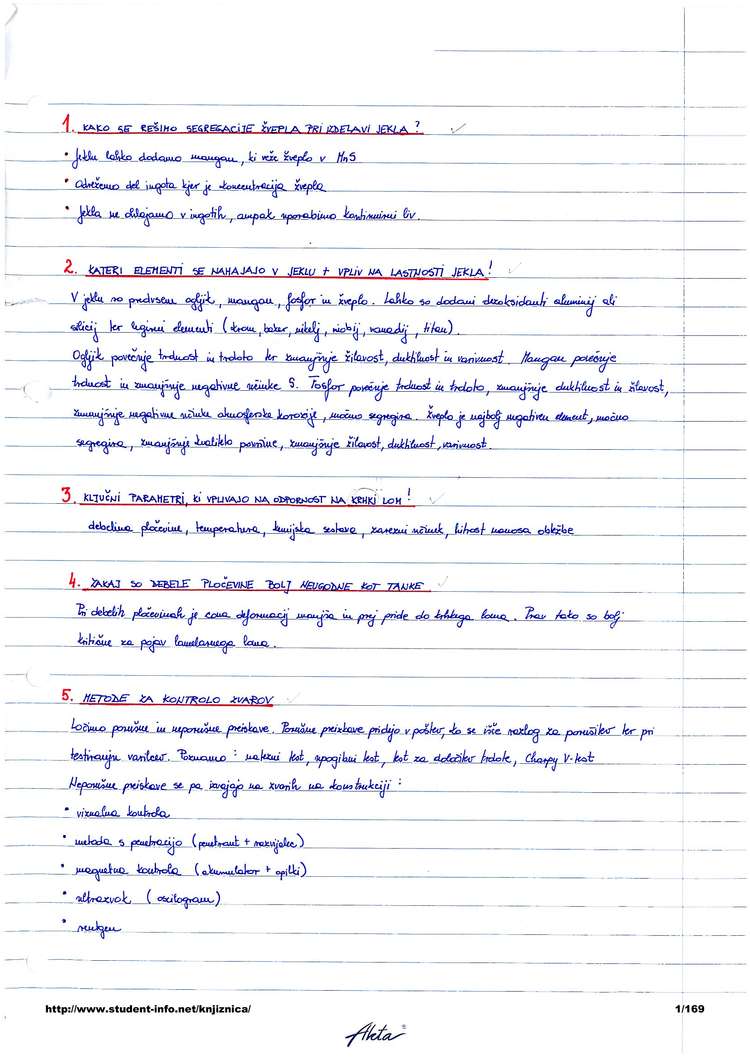 1. KAKO SE REŠIMO SEGREGACIJE ŽVEPLA PRI IZDELAVI JEKLA?
• Jeklu lahko dodamo mangan, ki veže žveplo v MnS
• Odrežemo del ingota kjer je koncentracija žvepla
• Jekla ne ulivamo v ingotih, ampak uporabimo kontinuirni liv.
2. KATERI ELEMENTI SE NAHAJAJO V JEKLU + VPLIV NA LASTNOSTI JEKLA!
V jeklu so predvsem ogljik, mangan, fosfor in žveplo. Lahko so dodani dezoksidanti aluminij ali
silicij ter legirni elementi (krom, baker, nikelj, niobij, vanadij, titan).
Ogljik povečuje trdnost in trdoto ter zmanjšuje žilavost, duktilnost in varivnost. Mangan povečuje
trdnost in zmanjšuje negativne učinke S. Fosfor povečuje trdnost in trdoto, zmanjšuje duktilnost in žilavost,
zmanjšuje negativne učinke atmosferske korozije, močno segregira. Žveplo je najbolj negativen element, močno
segregira, zmanjšuje kvaliteto površine, zmanjšuje žilavost, duktilnost, varivnost.
3. KLJUČNI PARAMETRI, KI VPLIVAJO NA ODPORNOST NA KRHKI LOM!
debelina pločevine, temperatura, kemijska sestava, zarezni učinek, hitrost nanosa obtežbe
4. ZAKAJ SO DEBELE PLOČEVINE BOLJ NEUGODNE KOT TANKE
Pri debelih pločevinah je cona deformacij manjša in prej pride do krhkega loma. Prav tako so bolj
kritične za pojav lamelarnega loma.
5. METODE ZA KONTROLO ZVAROV
Ločimo porušne in neporušne preiskave. Porušne preiskave pridejo v poštev, ko se išče razlog za porušitev ter pri
testiranju varilcev. Poznamo: natezni test, upogibni test, test za določitev trdote, Charpy V-test
Neporušne preiskave se pa izvajajo na zvarih na konstrukciji:
• vizualna kontrola
• metoda s penetracijo (penetrant + razvijalec)
• magnetna kontrola (akumulator + opilki)
• ultrazvok (oscilogram)
• rentgen
http://www.student-info.net/knjiznica/
1/169
Aheta